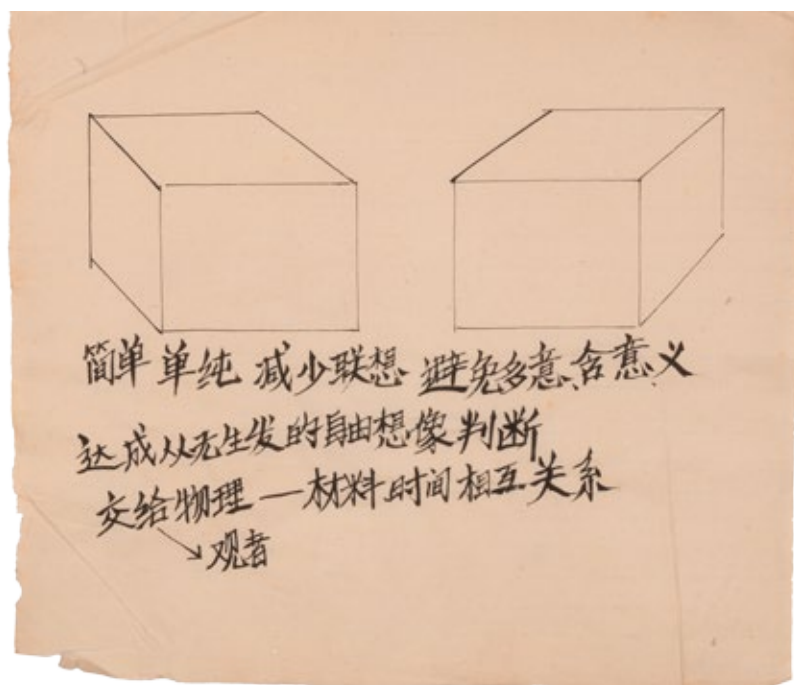 简单 单纯 减少联想 避免多意、含意、义
达成从无生发的自由想像判断
交给物理—材料时间相互关系
观者